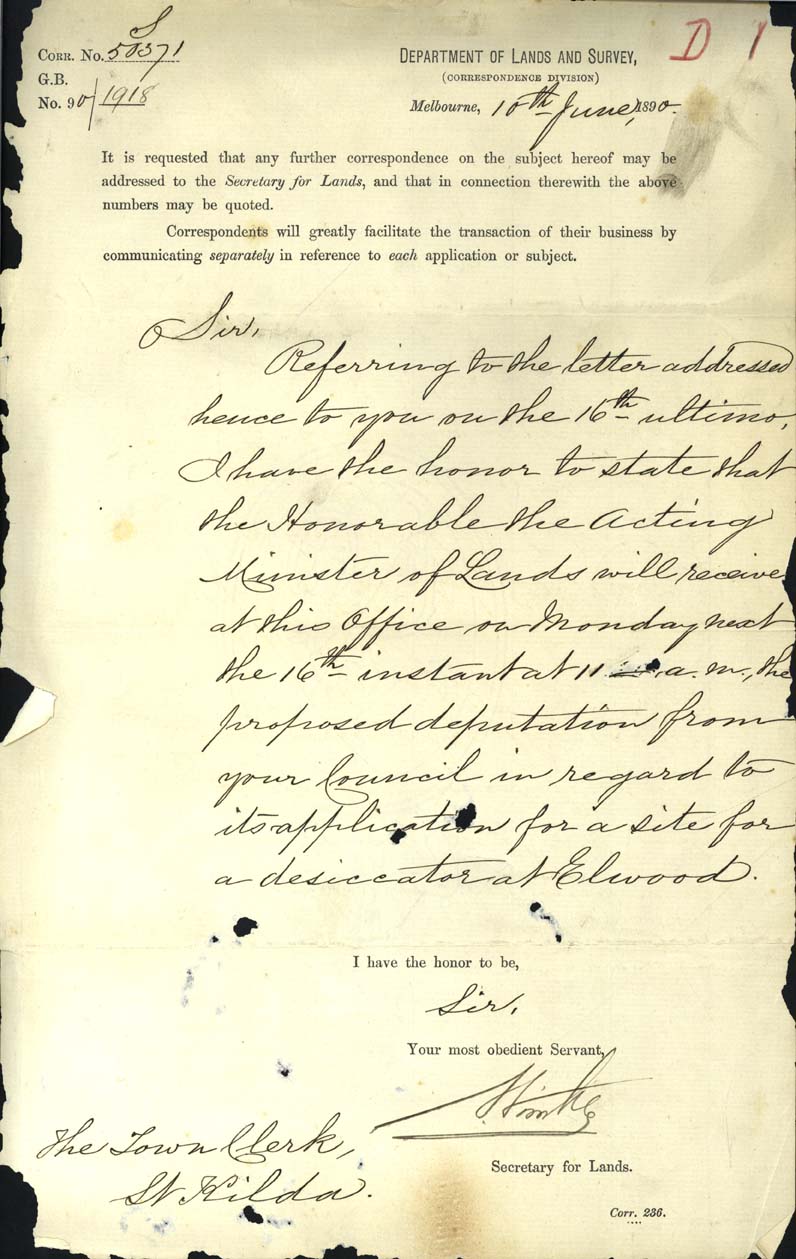 S
CORR. No. 50371
G.B.
No. 90/1918
D 1
DEPARTMENT OF LANDS AND SURVEY,
(CORRESPONDENCE DIVISION)
Melbourne, 10th June, 1890.
It is requested that any further correspondence on the subject hereof may be
addressed to the Secretary for Lands, and that in connection therewith the above
numbers may be quoted.
Correspondents will greatly facilitate the transaction of their business by
communicating separately in reference to each application or subject.
Sir,
Referring to the letter addressed
hence to you on the 16th ultimo,
I have the honor to state that
the Honorable the Acting
Minister of Lands will receive
at this Office on Monday next
the 16th instant at 11 a.m., the
proposed deputation from
your Council in regard to
its application for a site for
a desiccator at Elwood.
I have the honor to be,
Sir,
Your most obedient Servant,
Secretary for Lands.
The Town Clerk,
St Kilda.
Corr. 236.